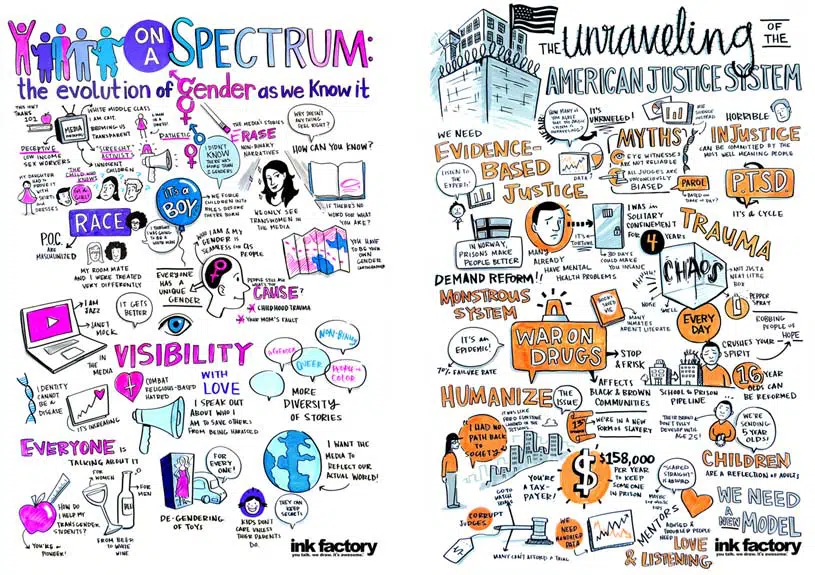 ON
A
SPECTRUM:
the evolution of Gender as we Know it
THIS ISN'T
TRANS
101
MEDIA
WHITE MIDDLE CLASS
I AM CAIT.
BECOMING US
TRANSPARENT
PATHETIC
DECEPTIVE
LOW INCOME
SEX WORKERS
INNOCENT
CHILDREN
THE MEDIA'S STORIES
ERASE
NON-BINARY
NARRATIVES
I DIDN'T
KNOW
THERE WAS
MORE THAN
2 GENDERS
WHY DOESN'T
ANYTHING
FEEL RIGHT?
HOW CAN YOU KNOW?
MY DAUGHTER
HAD TO
PROVE IT
WITH
SKIRTS
AND
DRESSES
I'M A
GIRL!
IT'S A
BOY
WE FORCE
CHILDREN INTO
ROLES BEFORE
THEY'RE BORN
WE ONLY SEE
TRANSWOMEN IN
THE MEDIA
IF THERE'S NO
WORD FOR WHAT
YOU ARE?
RACE
P.O.C.
ARE
MASCULINIZED
MY ROOM MATE
AND I WERE TREATED
VERY DIFFERENTLY
WHO I AM & MY
GENDER IS
SEAMLESS FOR CIS
PEOPLE
EVERYONE
HAS A
UNIQUE
GENDER
YOU HAVE
TO BE YOUR
OWN
GENDER
CARTOGRAPHER
CAUSE?
CHILDHOOD TRAUMA
YOUR MOM'S FAULT
I AM
JAZZ
JANET
MOCK
IN
THE MEDIA
IT GETS
BETTER
VISIBILITY
WITH
LOVE
NON-BINARY
AGENDER
QUEER
PEOPLE OF
COLOR
MORE
DIVERSITY
OF STORIES
IDENTITY
CANNOT
BE A
DISEASE
IT'S INCREASING
COMBAT
RELIGIOUS-BASED
HATRED
I SPEAK OUT
ABOUT WHO I
AM TO SAVE OTHERS
FROM BEING HARASSED
EVERYONE IS
TALKING ABOUT IT
FOR
EVERY
ONE!
I WANT THE
MEDIA TO
REFLECT OUR
ACTUAL WORLD!
HOW DO
I HELP MY
TRANSGENDER
STUDENTS?
YOU'RE A
PIONEER!
FOR A
WOMEN
FOR
MEN
FROM BEER TO
WHITE
WINE
DE-GENDERING
OF TOYS
KIDS DON'T
CARE UNLESS
THEIR PARENTS
DO.
THEY CAN
KEEP
SECRETS
ink factory
you talk. we draw. it's awesome.
THE unraveling OF
THE
AMERICAN JUSTICE SYSTEM
WE NEED
EVIDENCE-
BASED
JUSTICE
LISTEN TO
THE
EXPERTS!
IT'S
UNRAVELED!
DATA?
MYTHS
EYE WITNESSES
ARE NOT RELIABLE
ALL JUDGES ARE
UNCONSCIOUSLY
BIASED
PAROLE
BASED ON
TIME OF DAY?
HORRIBLE
INJUSTICE
CAN BE COMMITTED BY THE
MOST WELL MEANING PEOPLE
P.T.S.D.
IT'S A CYCLE
IN NORWAY,
PRISONS MAKE
PEOPLE BETTER
MANY
ALREADY
HAVE MENTAL
HEALTH PROBLEMS
IT'S
TORTURE
30 DAYS
COULD MAKE
YOU INSANE
I WAS IN
SOLITARY
CONFINEMENT
FOR
4 YEARS
TRAUMA
CHAOS
NOT JUST A
NEAT LITTLE
BOX
NOISE
SMELL
PEPPER
SPRAY
DEMAND REFORM!!
MONSTROUS
SYSTEM
MANY
INMATES
AREN'T LITERATE
EVERY
DAY
ROBBING
PEOPLE OF
HOPE
CRUSHES YOUR
SPIRIT
IT'S AN
EPIDEMIC!
70% FAILURE RATE
WAR ON
DRUGS
STOP
& FRISK
AFFECTS
BLACK & BROWN
COMMUNITIES
SCHOOL TO PRISON
PIPELINE
16 YEAR
OLDS CAN
BE REFORMED
HUMANIZE
THE
ISSUE
I HAD NO
PATH BACK
TO
SOCIETY
13TH
WE'RE IN A NEW
FORM OF SLAVERY
THEIR BRAINS
DON'T FULLY
DEVELOP UNTIL
AGE 25!
WE'RE
SENDING
5 YEAR
OLDS!
CHILDREN
ARE A REFLECTION OF ADULTS
$
$158,000
PER YEAR
TO KEEP
SOMEONE
IN PRISON
YOU'RE
A TAX-
PAYER!
"SCARED
STRAIGHT"
IS AWKWARD
WE NEED
A NEW
MODEL
CORRUPT
JUDGES
WE
NEED
UNBIASED
DATA
MANY CAN'T AFFORD A TRIAL
MENTORS
ADVISED &
TROUBLED PEOPLE
NEED LOVE
& LISTENING
ink factory
you talk. we draw. it's awesome.